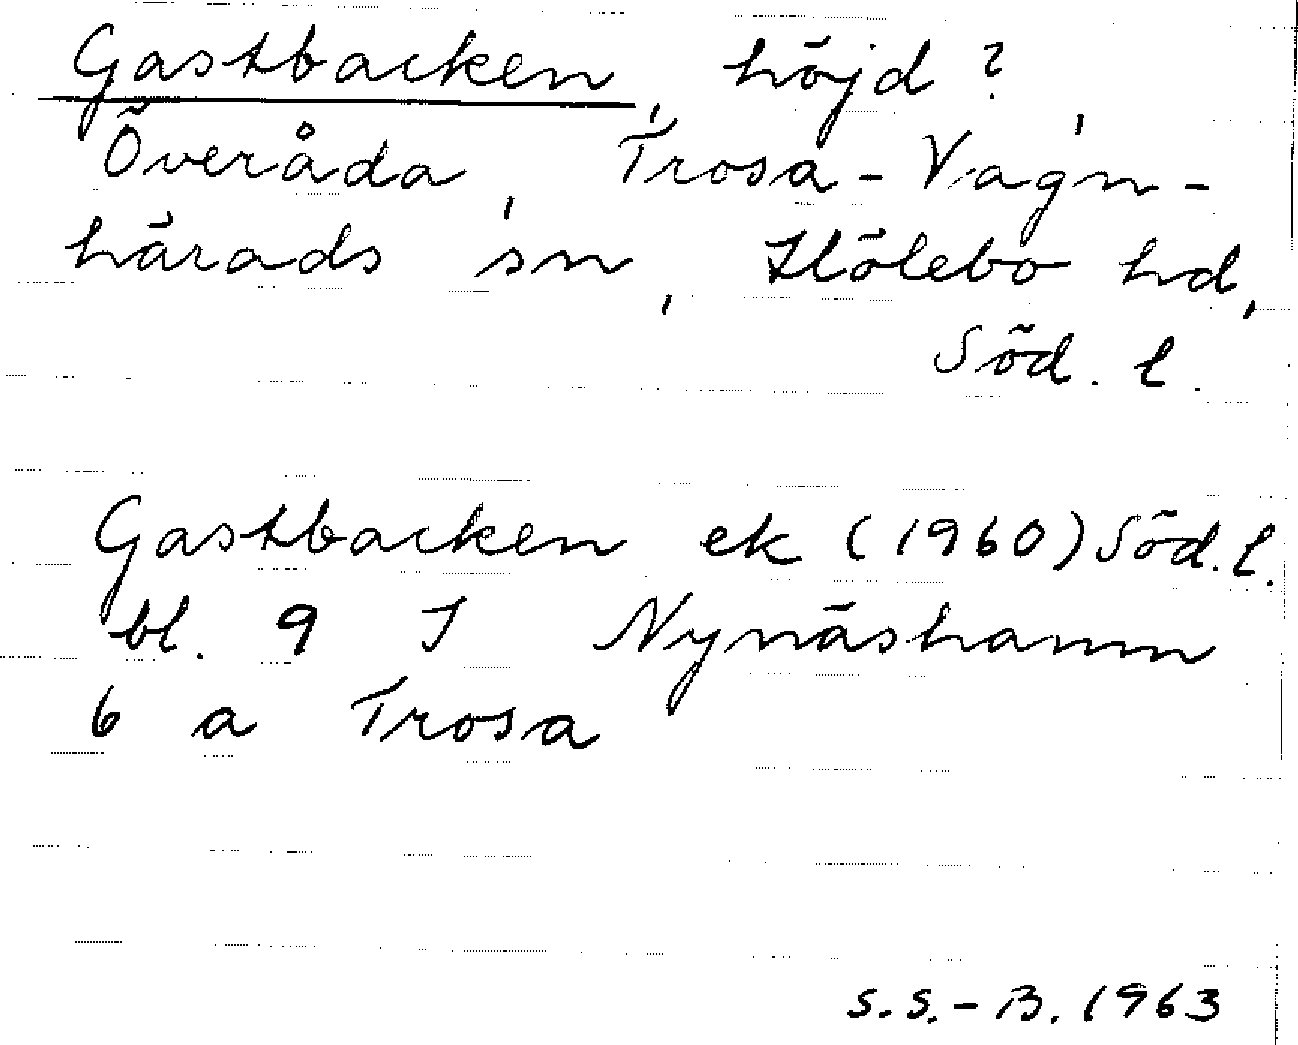 Gastbacken, höjd?,
Överåda, Trosa-Vagn-
härads sn, Hölebo hd,
Söd. l.
Gastbacken ek (1960) Söd. l.
bl. 9 I Nynäshamn
6 a Trosa
S.S.-B. 1963